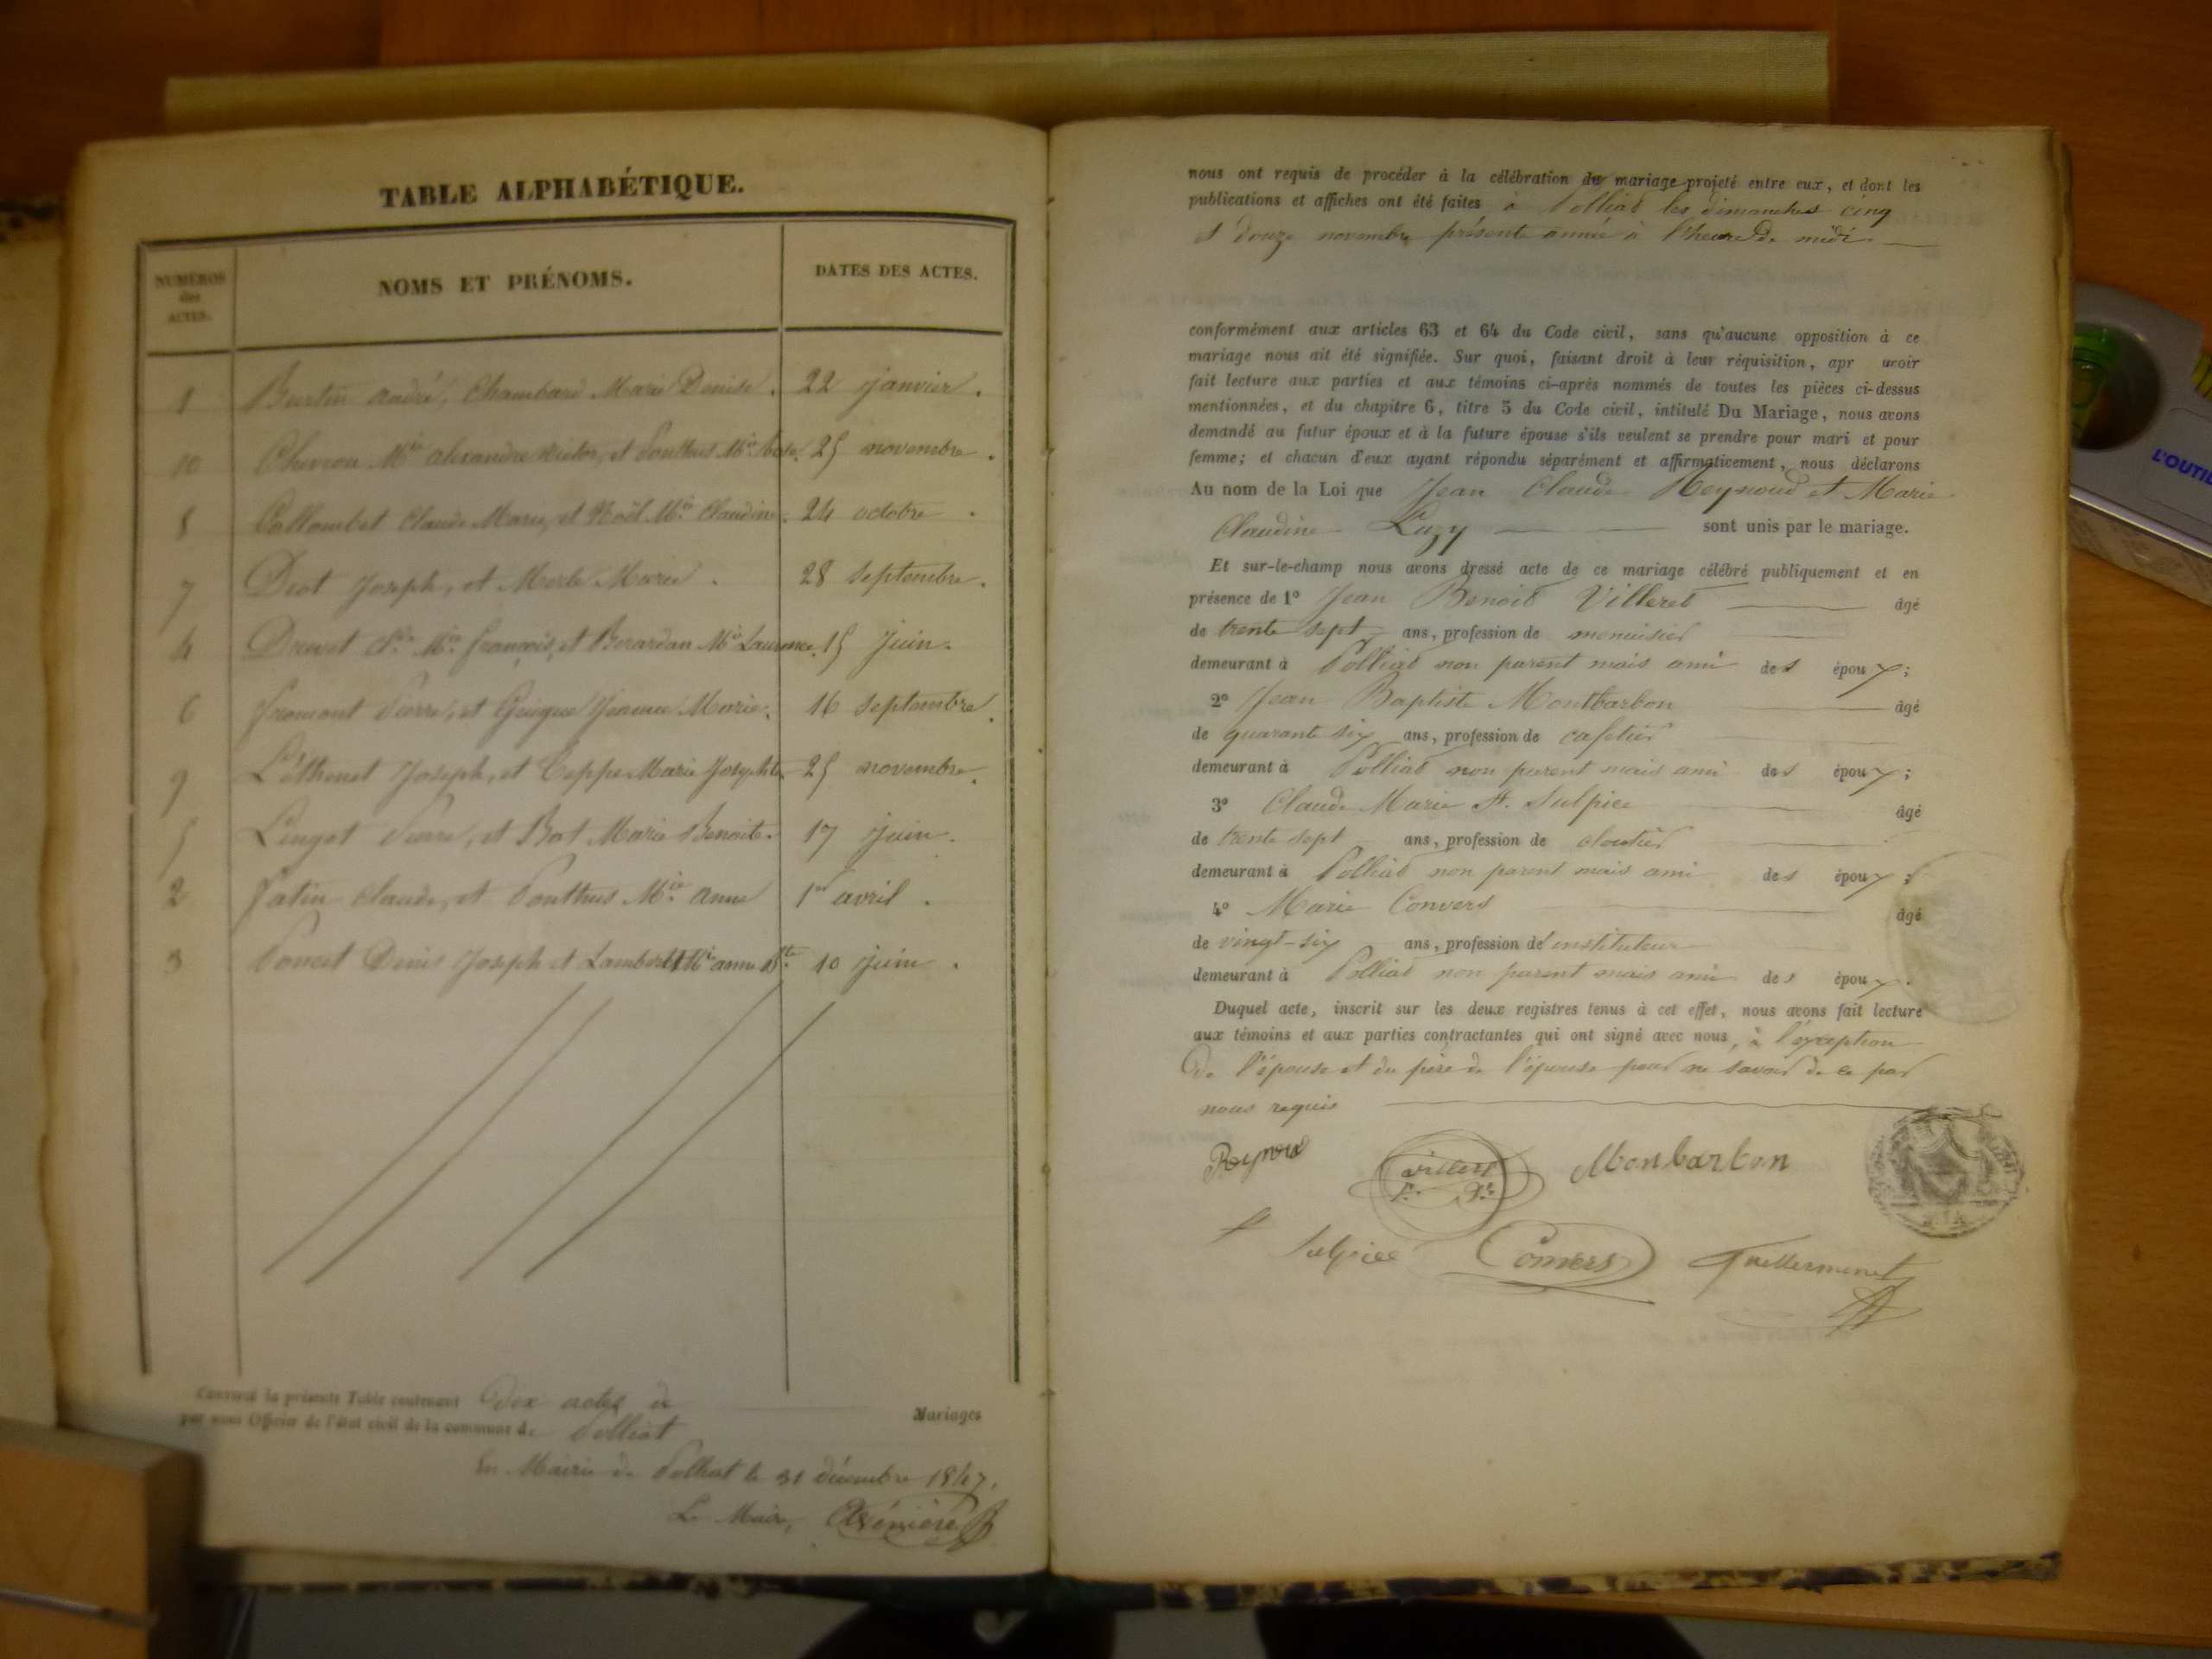 TABLE ALPHABÉTIQUE.
NUMÉROS des ACTES.
NOMS ET PRÉNOMS.
DATES DES ACTES.
1 Burtin andré, Chambard Marie Denise. 22 janvier.
10 Chevron Mie alexandre victor, et Ponthus Mie 25 novembre.
8 Collombet Claude Marie, et Noël Mie Claudine. 24 octobre.
7 Diot Joseph, et Merle Marie. 28 septembre.
4 Drevet Mie françois, et Berardan Mie Laurence. 15 Juin.
6 fromont Pierre, et Jeanne Marie. 16 septembre.
9 Léthenet Joseph, et Teppe Marie Josephte 25 novembre.
5 Lingot Pierre, et Bat Marie Benoite. 17 juin.
2 Patin Claude, et Ponthus Mie anne 1er avril.
3 Poncet Denis Joseph et Lambert Mie anne 10 juin.
Convenu la présente Table contenant Dix actes de Mariages
par nous Officier de l'état civil de la commune de Polliat
En Mairie de Polliat le 31 décembre 1847.
Le Maire,
nous ont requis de procéder à la célébration du mariage projeté entre eux, et dont les
publications et affiches ont été faites à Polliat les dimanches cinq
et douze novembre présente année à l'heure de midi
conformément aux articles 63 et 64 du Code civil, sans qu'aucune opposition à ce
mariage nous ait été signifiée. Sur quoi, faisant droit à leur réquisition, apr avoir
fait lecture aux parties et aux témoins ci-après nommés de toutes les pièces ci-dessus
mentionnées, et du chapitre 6, titre 5 du Code civil, intitulé Du Mariage, nous avons
demandé au futur époux et à la future épouse s'ils veulent se prendre pour mari et pour
femme; et chacun d'eux ayant répondu séparément et affirmativement, nous déclarons
Au nom de la Loi que Jean Claude Reynoud et Marie
Claudine Luzy sont unis par le mariage.
Et sur-le-champ nous avons dressé acte de ce mariage célébré publiquement et en
présence de 1º Jean Benoit Villeret âgé
de trente sept ans, profession de menuisier
demeurant à Polliat non parent mais ami des époux;
2º Jean Baptiste Montbarbon âgé
de quarante six ans, profession de cafetier
demeurant à Polliat non parent mais ami des époux;
3º Claude Marie St. Sulpice âgé
de trente sept ans, profession de cloutier
demeurant à Polliat non parent mais ami des époux;
4º Marie Convers âgé
de vingt-six ans, profession d'instituteur
demeurant à Polliat non parent mais ami des époux.
Duquel acte, inscrit sur les deux registres tenus à cet effet, nous avons fait lecture
aux témoins et aux parties contractantes qui ont signé avec nous, à l'exception
de l'épouse et du père de l'épouse pour ne savoir de ce par
nous requis
Reynoud villeret Monbarbon
St Sulpice Convers Guillermenet
L'OUTIL